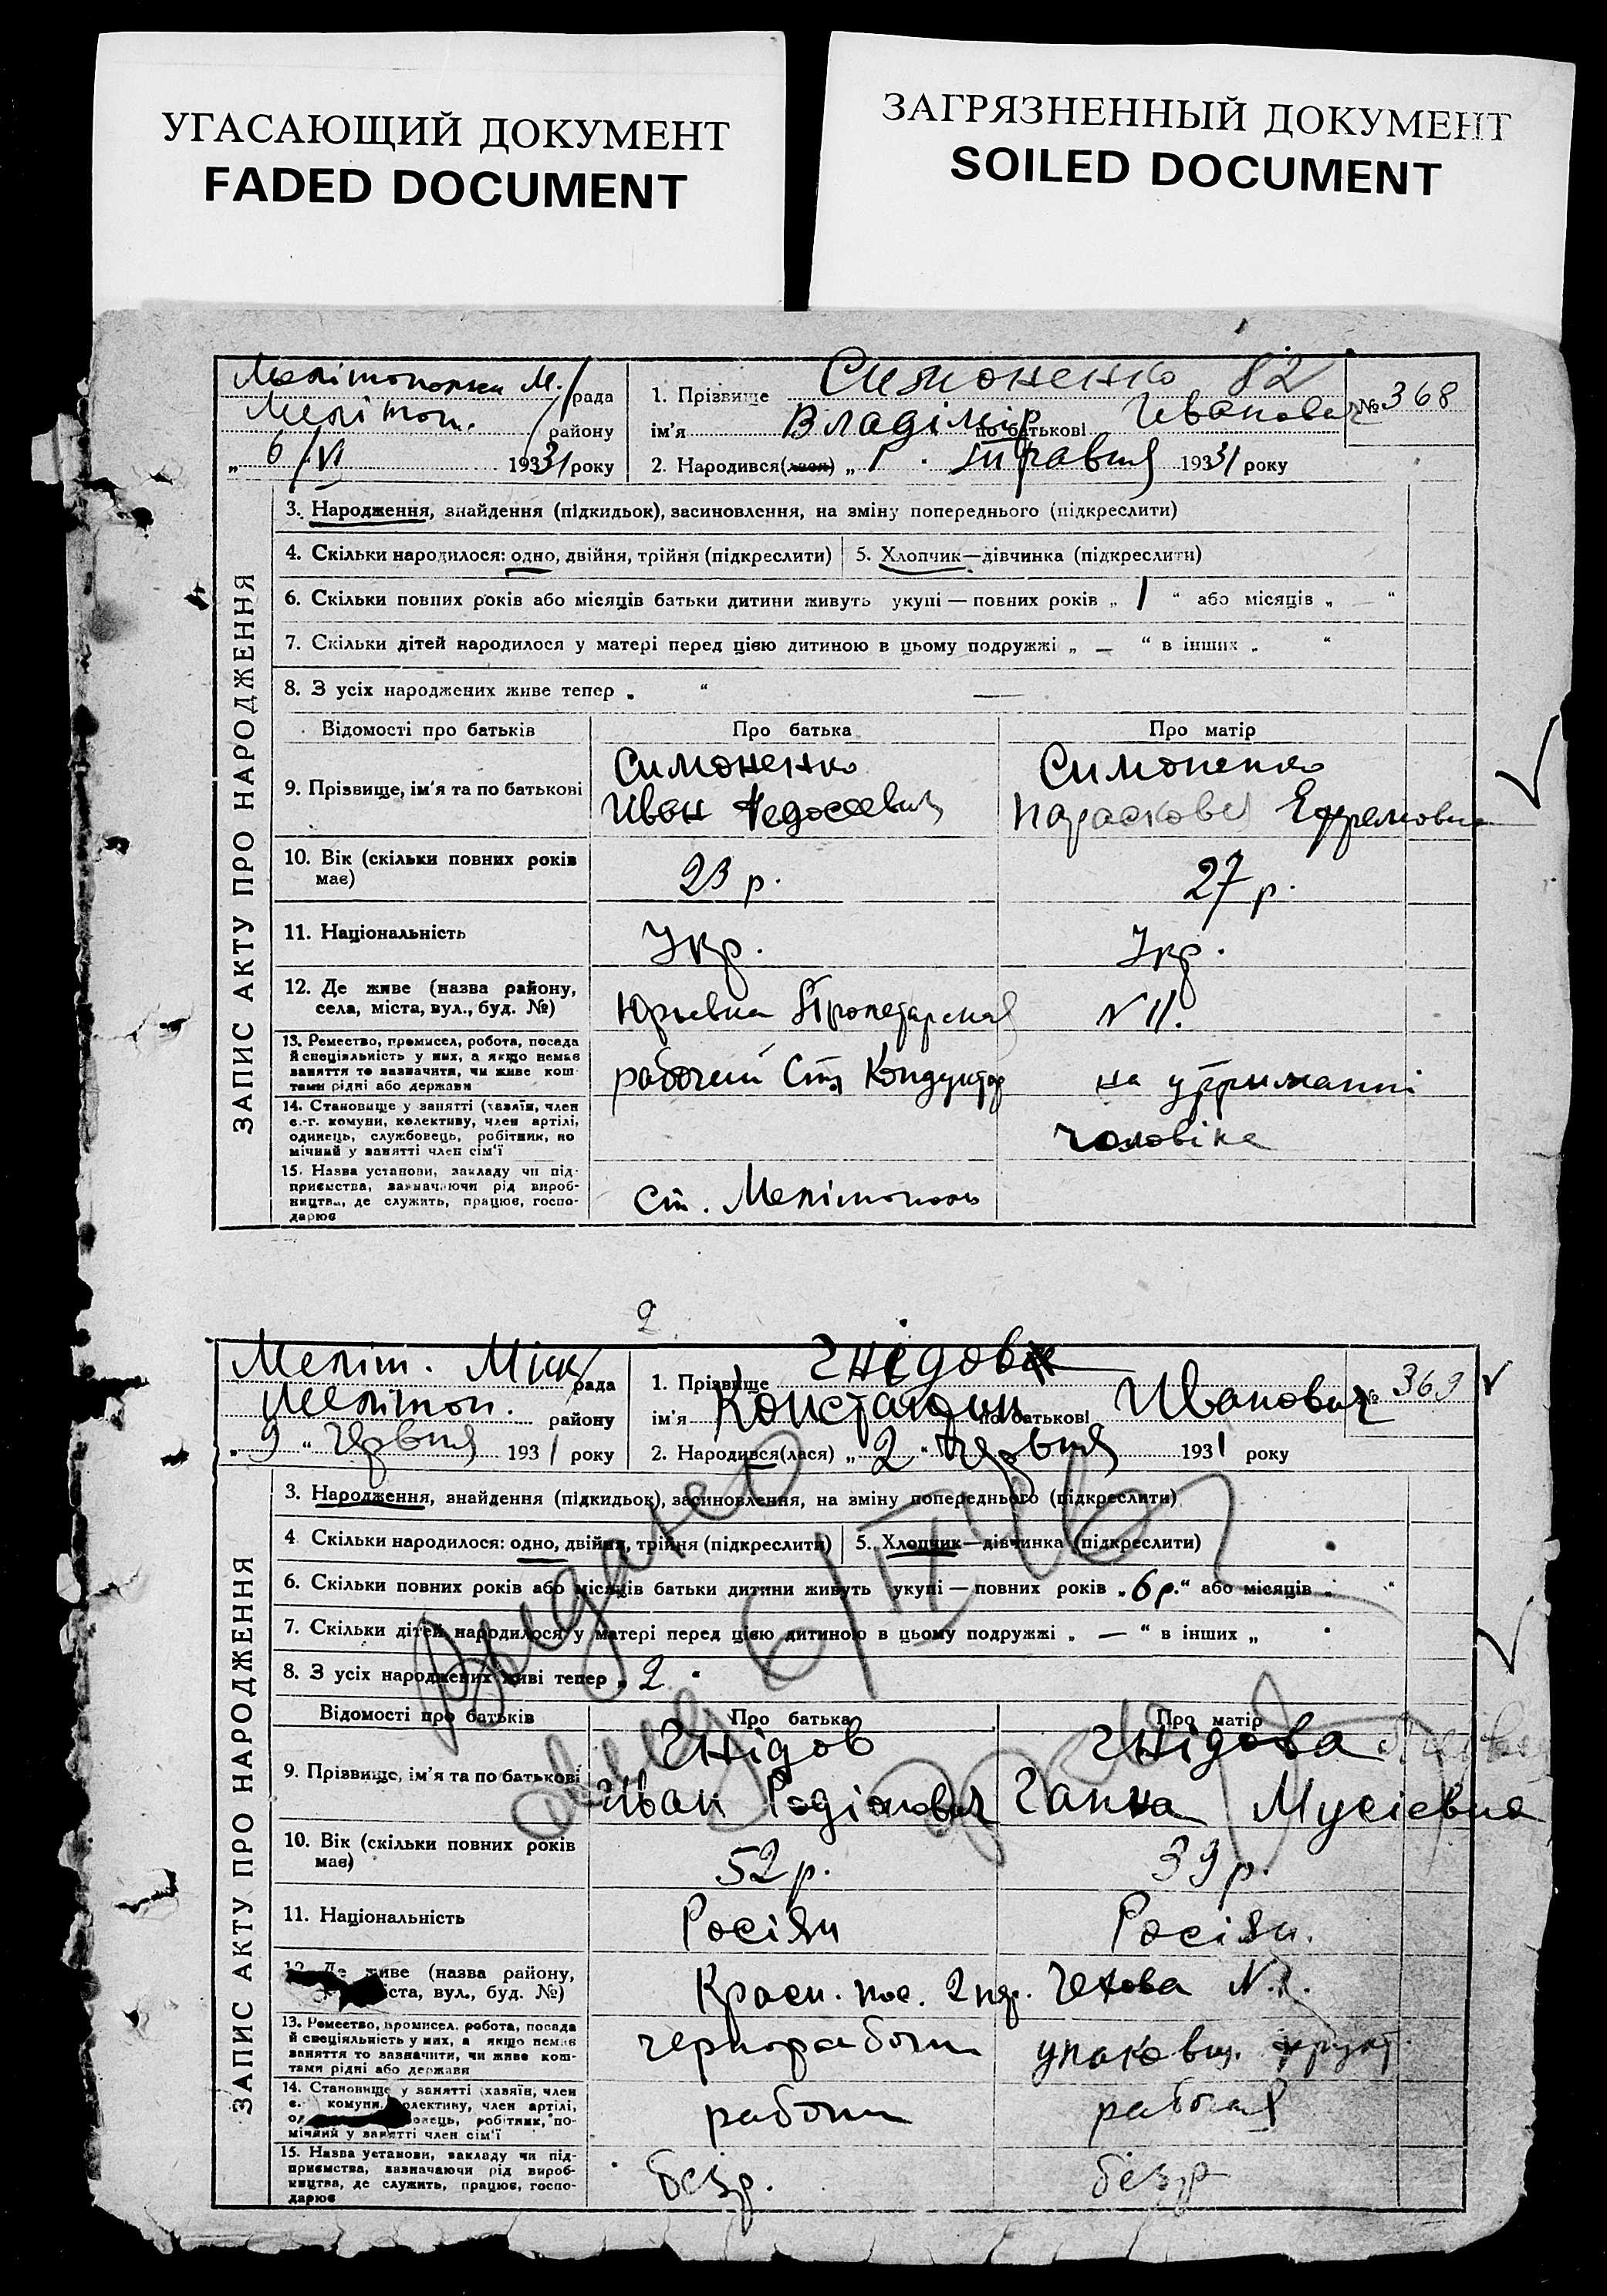 УГАСАЮЩИЙ ДОКУМЕНТ
FADED DOCUMENT
ЗАГРЯЗНЕННЫЙ ДОКУМЕНТ
SOILED DOCUMENT
ЗАПИС АКТУ ПРО НАРОДЖЕННЯ
М. рада
Мелітоп. району
„ 6/VI 1931 року
1. Прізвище Симоненко 82
ім'я Владімір по батькові Иванович
№ 368
2. Народився(лася) „ 1 . травня 1931 року
3. Народження, знайдення (підкидьок), засиновлення, на зміну попереднього (підкреслити)
4. Скільки народилося: одно, двійня, трійня (підкреслити) 5. Хлопчик—дівчинка (підкреслити)
6. Скільки повних років або місяців батьки дитини живуть укупі — повних років „ 1 “ або місяців „ — “
7. Скільки дітей народилося у матері перед цією дитиною в цьому подружжі „ — “ в інших „ “
8. З усіх народжених живе тепер „ “ —
Відомості про батьків Про батька Про матір
9. Прізвище, ім'я та по батькові
Симоненко Симоненко
Иван Федосеевич Парасковея Ефремовна
10. Вік (скільки повних років має) 23 р. 27 р.
11. Національність Укр. Укр.
12. Де живе (назва району,
села, міста, вул., буд. №) Юрьевка Пролетарская № 11.
13. Ремество, промисел, робота, посада
й спеціяльність у них, а якщо немає
заняття то зазначити, чи живе кош
тами рідні або держави
рабочий Ст. Кондуктор на утриманні
чоловіка
14. Становище у занятті (хазяїн, член
с.-г. комуни, колективу, член артілі,
одинець, службовець, робітник, по
мічний у занятті член сім'ї
15. Назва установи, закладу чи під-
приємства, зазначаючи рід вироб-
ництва, де служить, працює, госпо-
дарює
ст. Мелітополь
2
ЗАПИС АКТУ ПРО НАРОДЖЕННЯ
Меліт. Міск рада
Мелітоп. району
„ 9 “ Червня 1931 року
1. Прізвище Гнідов
ім'я Константин по батькові Иванович
№ 369
2. Народився(лася) „ 2 “ червня 1931 року
3. Народження, знайдення (підкидьок), засиновлення, на зміну попереднього (підкреслити)
4 Скільки народилося: одно, двійня, трійня (підкреслити) 5. Хлопчик—дівчинка (підкреслити)
6. Скільки повних років або місяців батьки дитини живуть укупі — повних років „ 6 р. “ або місяців „ “
7. Скільки дітей народилося у матері перед цією дитиною в цьому подружжі „ — “ в інших „
8. З усіх народжених живі тепер „ 2 “
Відомості про батьків Про батька Про матір
9. Прізвище, ім'я та по батькові
Гнідов Гнідова
Иван Родіонович Ганна Мусіевна
10. Вік (скільки повних років має) 52 р. 39 р.
11. Національність Росіян Росіян.
живе (назва району,
міста, вул., буд. №) Красн. пос. 2 пер. Чехова №
13. Ремество, промисел, робота, посада
й спеціяльність у них, а якщо немає
заняття то зазначити, чи живе кош-
тами рідні або держави
чернорабочий упаковщ. фрукт.
14. Становище у занятті (хазяїн, член
комуни, колективу, член артілі,
робітник, по-
мічний у занятті член сім'ї
рабочий рабочая
15. Назва установи, закладу чи під-
приємства, зазначаючи рід вироб-
ництва, де служить, працює, госпо-
дарює
безр. безр